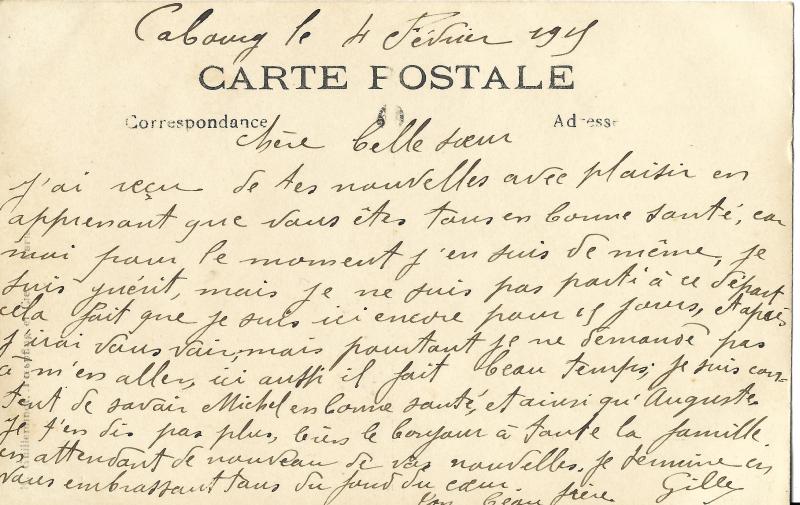 Cabourg le 4 Février 1915
CARTE POSTALE
Correspondance
Adresse
chère belle sœur
J'ai reçu de tes nouvelles avec plaisir en
apprenant que vous êtes tous en bonne santé, car
moi pour le moment j'en suis de même, je
suis guérit, mais je ne suis pas parti à ce départ
cela fait que je suis ici encore pour 15 jours, et après
j'irai vous voir, mais pourtant je ne demande pas
à m'en aller, ici aussi il fait beau temps; je suis con-
tent de savoir Michel en bonne santé, et ainsi qu'Auguste
Je t'en dis pas plus, bien le bonjour à toute la famille
en attendant de nouveau de vos nouvelles. je termine en
vous embrassant tous du fond du cœur.
Ton beau frère Gilles